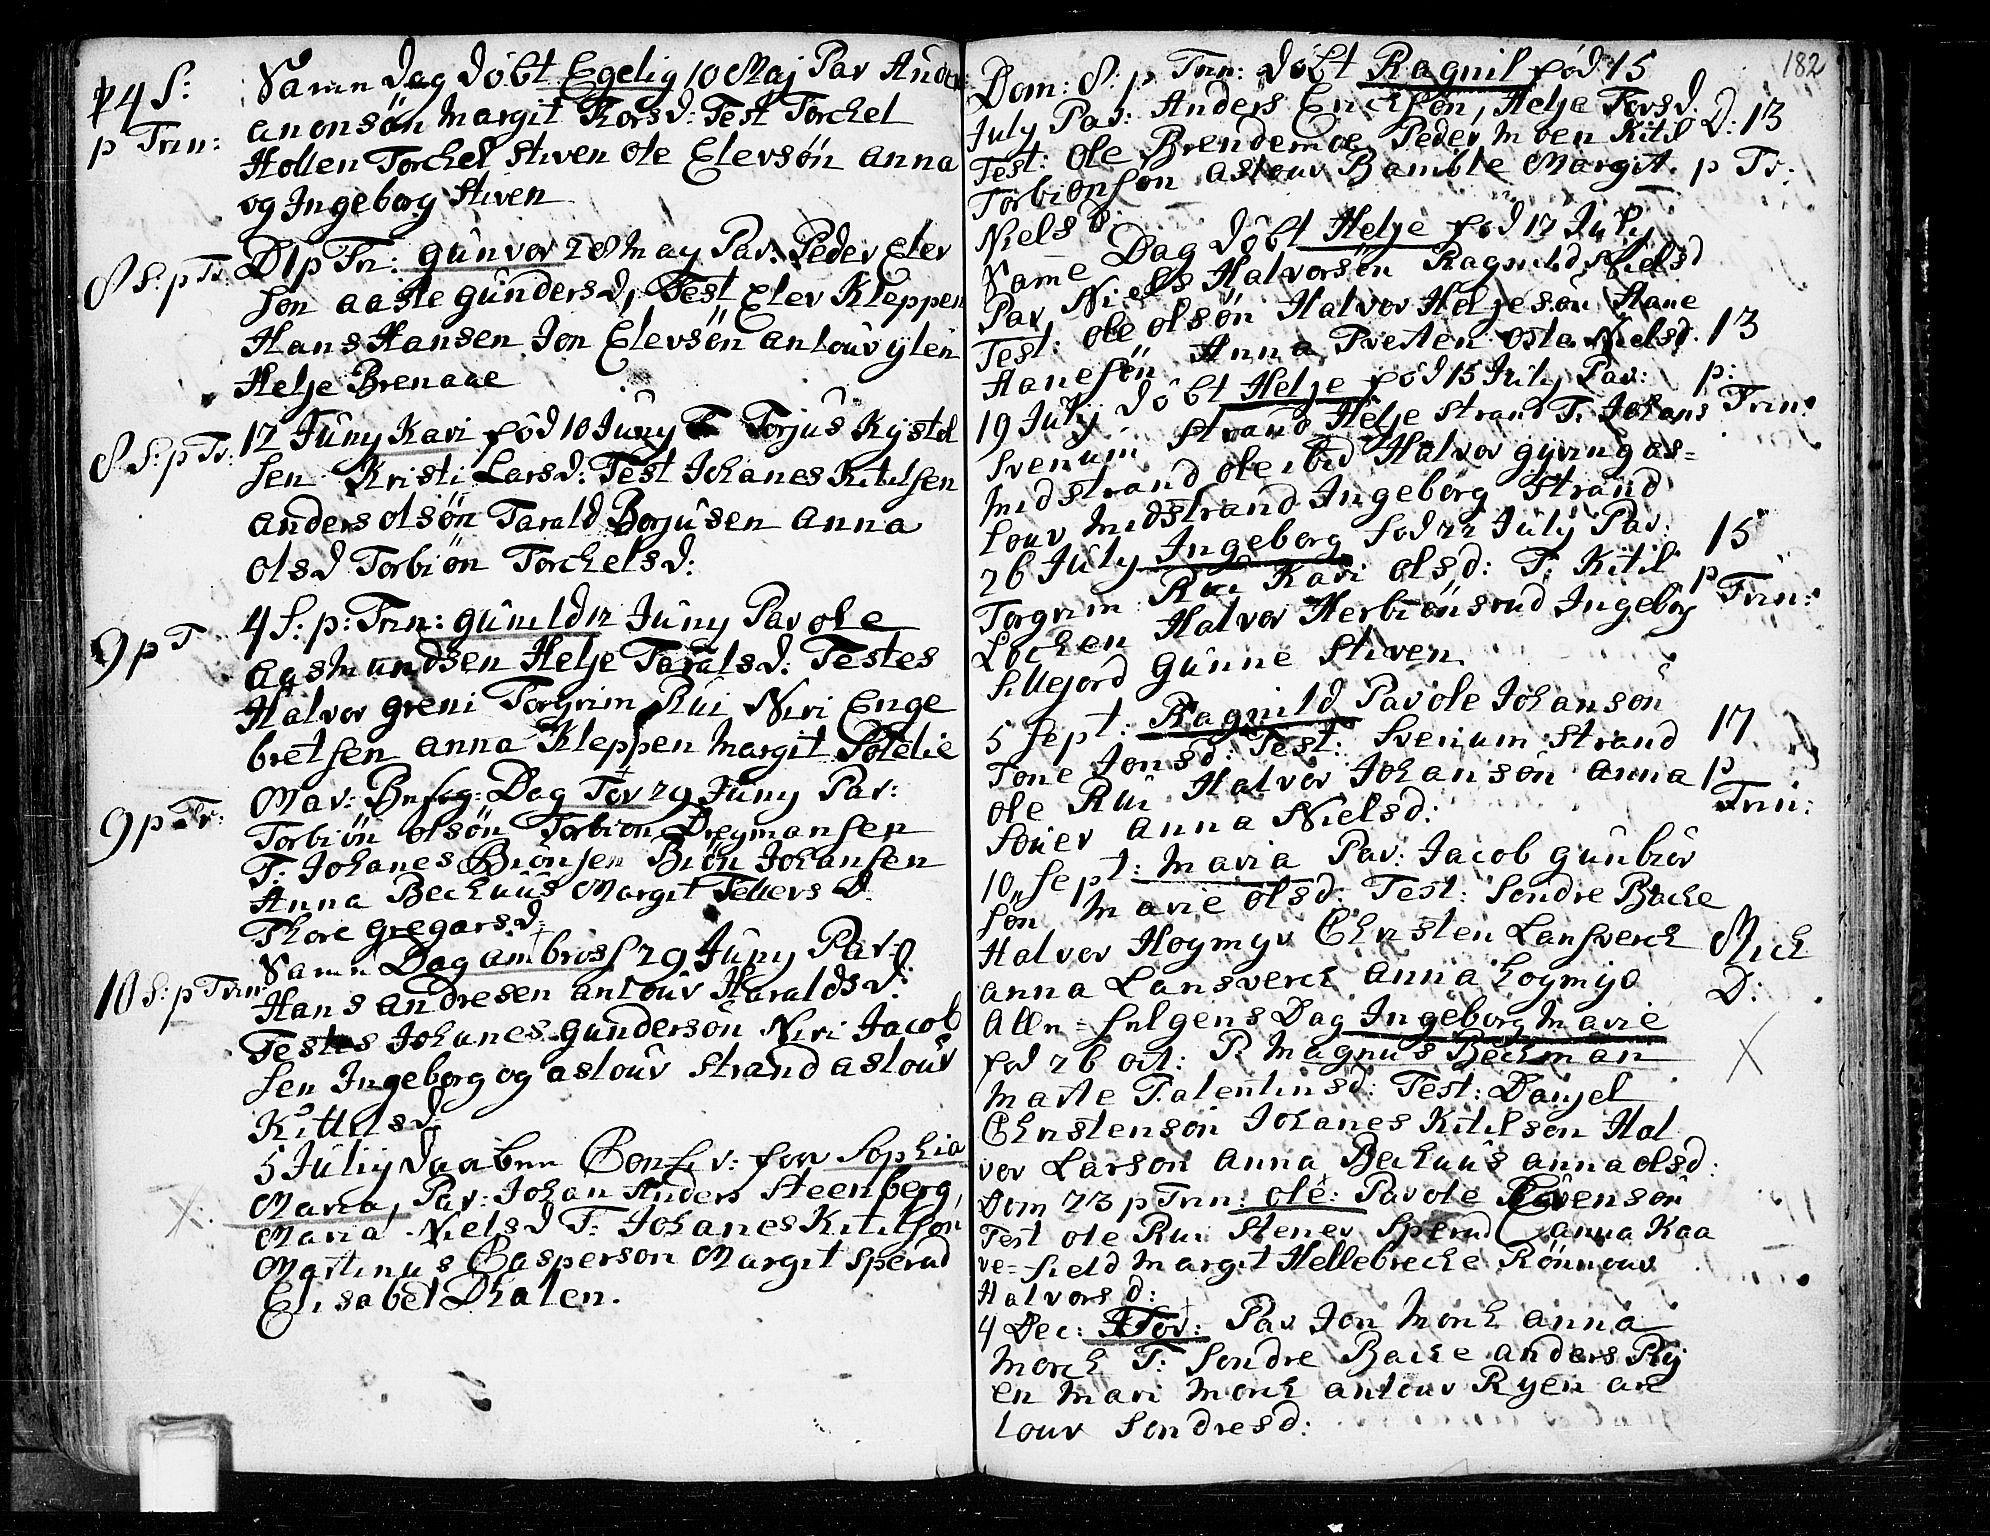 14 S:
p Trin:
Samn Dag Döbt Egelig 10 Maj Par Ander
anonsön Margit Thorsd: Test Torchel
Hollen Torchel Stiven Ole Elevsön anna
og Ingeborg Stiven
8 S: p Tr:
D 1 p Tri: gunvor 28 May Par: Peder Elev
sön aaste gundersd, Test Elev Kleppen
Hans Hansen Jon Elevsön anlouv
Helje Brenaae
8 S: p Tr:
12 Juny Kari föd 10 Juny Torjus Kystel
sen Kristi Larsd: Test Johanes Kitilsen
anders olsön Tarald Borjusen anna
olsd Torbiön Torchelsd:
9 p T
4 S: p: Trin: gunild 12 Juny Par ole
aasmundsen Helje Taralsd: Testes
Halvor greni Torgrim Rui Niri Enge
bretsen anna Kleppen Margit
9 p Tr:
Mar: Besög: Dag Tor 29 Juny Par:
Torbiön olsön Torbion Dregmansen
T: Johanes Biönsen Biön Johansen
Anna Bechuus Margit Tellers D
Thore gregarsd:
10 S: p Trin:
Samn Dag ambros f 29 Juny Par:
Hans andresen anlouv Haraldsd:
Testes Johanes gundersön Niri Jacob
sen Ingeborg og aslouv Strand aslouv
Kittilsd
5 July Daaben Confir: for Sophia
X:
Maria, Par: Johan Anders Steenberg,
Maria Nielsd T: Johanes Kitilsön
Martinus Casperson Margit Sperud
Elisabet Dhalen.
182
Dom: 8: p Trin: Döbt Ragnil föd 15
July Par: Anders Erichsön, Helje Torsd.
Test: ole Brendemoe Peder Moen Kitil
D: 13
p Tr:
Torbionsön aslouv Bamble Margit
Niels D:
Same Dag Döbt Helje föd 17 July
Par Niels Halvorsön Ragnild Nielsd
Test: ole olsön Halvor Heljesön Hane
Hanesön Anna Presten Nielsd.
13
p:
Trin:
19 July Döbt Helje föd 15 July Par:
Svenum Strand Helje Strand T: Johans
Midstrand ole ibid Halvor gyving as=
louv Midstrand Ingeborg Strand
26 July Ingeborg föd 22 July Par:
15
p
Trin:
Torgrim Rui Kari olsd: T: Kitil
Lochen Halvor Herbiönsrud Ingeborg
Sillejord gunne Stiven
5 Sept: Ragnild Par ole Johansön
17
p
Trin:
Tone Jonsd: Test: Svenum Strand
ole Rui Halvor Johanson anna
Souer anna Nielsd:
10 Sept: Maria Par: Jacob gunbiör
sön Marie olsd: Test: Sondre Bache
Halvor Hogmyr Christen Lansverch
Mich
D:
anna Lansverch anna
Alle=helgens Dag Ingeborg Marie
föd 26 oct: P. Magnus Bechman
X
Marte Talentinsd: Test: Danjel
Christensön Johanes Kitilson Hal
vor Larson anna Bechuus anna olsd:
Dom 23 p Trin: ole: Par ole Evensön
Test ole Rui Stener Sperud anna Kaa
ve=field Margit Hellebreche Rönnouv
Halvorsd:
4 Dec: Tor: Par Jon Morch anna
Morch T: Sondre Bache anders Ry
en Mari Morch anlouv Ryen as
louv Sondresd: